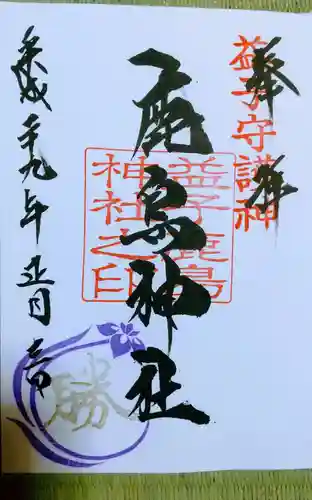 奉拝
益子守護神
鹿島神社
益子鹿島
神社之印
平成二十九年正月二日
勝